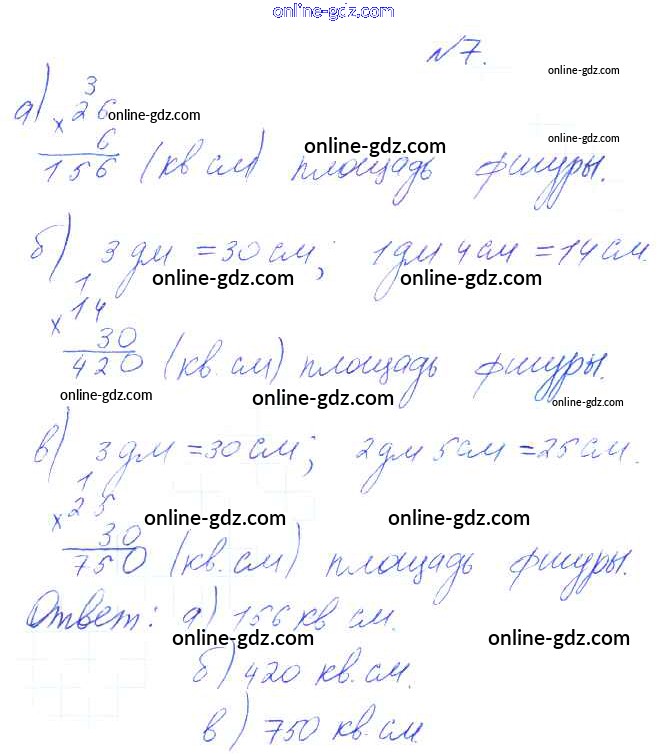 onl!ne-gdz.com
N7.
online-gdz.com
3
а) × 26 online-gdz.com
6 online-gdz.com online-gdz.com
156 (кв см) площадь фигуры.
б) 3 дм = 30 см; 1 дм 4 см = 14 см.
1 online-gdz.com online-gdz.com
× 14
30
420 (кв. см) площадь фигуры.
online-gdz.com online-gdz.com online-gdz.com
в) 3 дм = 30 см; 2 дм 5 см = 25 см.
1
× 25 online-gdz.com online-gdz.com
30
750 (кв. см) площадь фигуры.
Ответ: а) 156 кв см.
online-gdz.com online-gdz.com
б) 420 кв. см.
в) 750 кв. см.